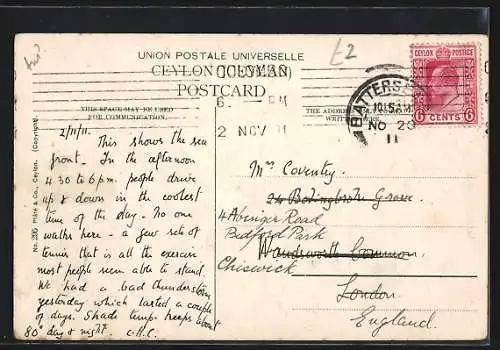 UNION POSTALE UNIVERSELLE
CEYLON (CEYLAN)
POSTCARD
THIS SPACE MAY BE USED
FOR COMMUNICATION.
THE ADDRESS
£2
CEYLON POSTAGE
6 CENTS 6
BATTERSEA
10.15 AM
NO 20
11
COLOMBO
6. PM
2 NOV 11
No. 306 Plâté & Co., Ceylon. (Copyright)
2/11/11.
This shows the sea
front. In the afternoon
4.30 to 6 p.m. people drive
up & down in the coolest
time of the day - no one
walks here - a few sets of
tennis that is all the exercise
most people seem able to stand.
We had a bad thunderstorm
yesterday which lasted a couple
of days. Shade temp. keeps about
80° day & night. C.H.C.
Mrs Coventry
24 Bolingbroke Grove
4 Abinger Road
Bedford Park
Wandsworth Common
Chiswick
London
England.